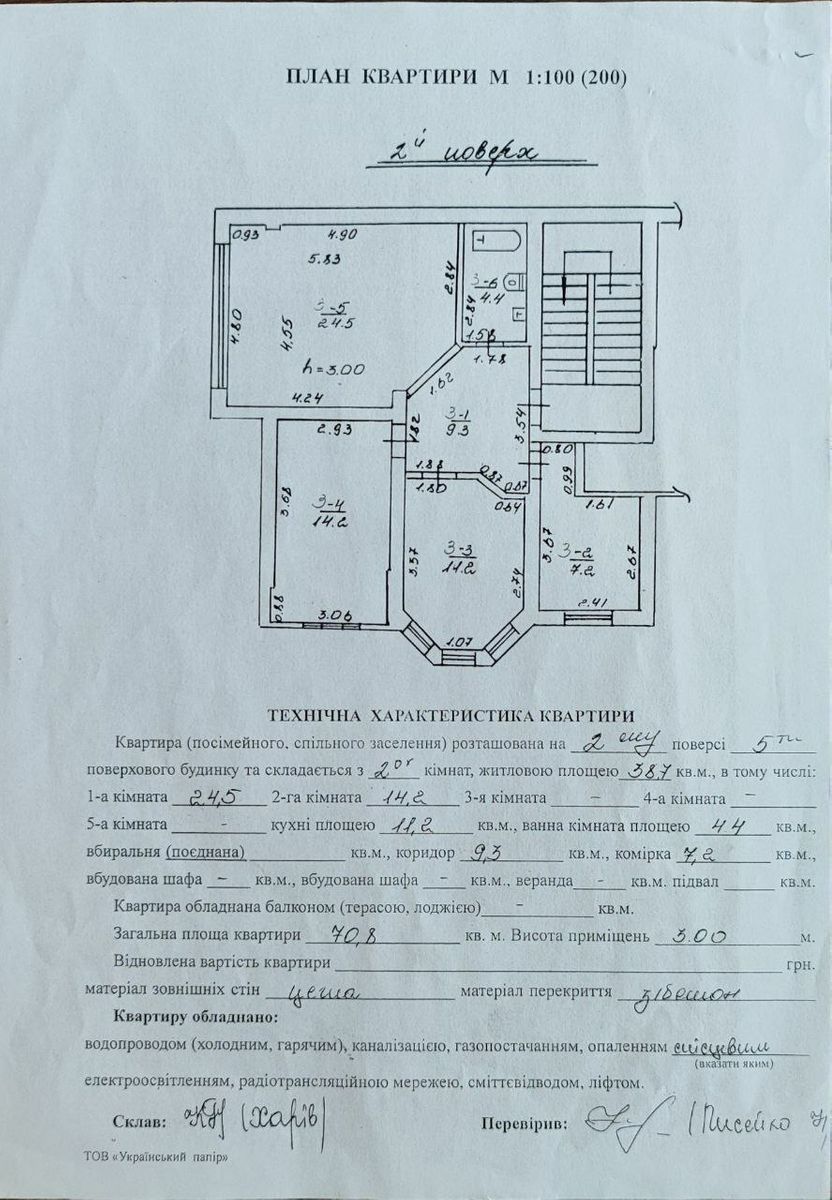 ПЛАН КВАРТИРИ М 1:100 (200)
2й поверх
0.93 4.90
5.83
2.84
3-6
4.4
2.84
3-5
24.5
4.80
4.55
1.58
1.78
h=3.00
1.62
4.24
2.93
1.82
3-1
9.3
3.54
0.80
0.99
1.88
0.87
0.67
1.80
0.64
1.61
3.68
3-4
14.2
3-3
11.2
3.57
2.74
3.67
3-2
7.2
2.67
0.88
3.06
2.41
1.07
ТЕХНІЧНА ХАРАКТЕРИСТИКА КВАРТИРИ
Квартира (посімейного, спільного заселення) розташована на 2 ому поверсі 5ти
поверхового будинку та складається з 2ох кімнат, житловою площею 38.7 кв.м., в тому числі:
1-а кімната 24,5 2-га кімната 14,2 3-я кімната - 4-а кімната -
5-а кімната - кухні площею 11,2 кв.м., ванна кімната площею 4.4 кв.м.,
вбиральня (поєднана) кв.м., коридор 9,3 кв.м., комірка 7,2 кв.м.,
вбудована шафа - кв.м., вбудована шафа - кв.м., веранда - кв.м. підвал кв.м.
Квартира обладнана балконом (терасою, лоджією) - кв.м.
Загальна площа квартири 70,8 кв. м. Висота приміщень 3.00 м.
Відновлена вартість квартири грн.
матеріал зовнішніх стін цегла матеріал перекриття з/бетон
Квартиру обладнано:
водопроводом (холодним, гарячим), каналізацією, газопостачанням, опаленням місцевим
(вказати яким)
електроосвітленням, радіотрансляційною мережею, сміттєвідводом, ліфтом.
Склав: (Харів) Перевірив: (Писейко
ТОВ «Український папір»